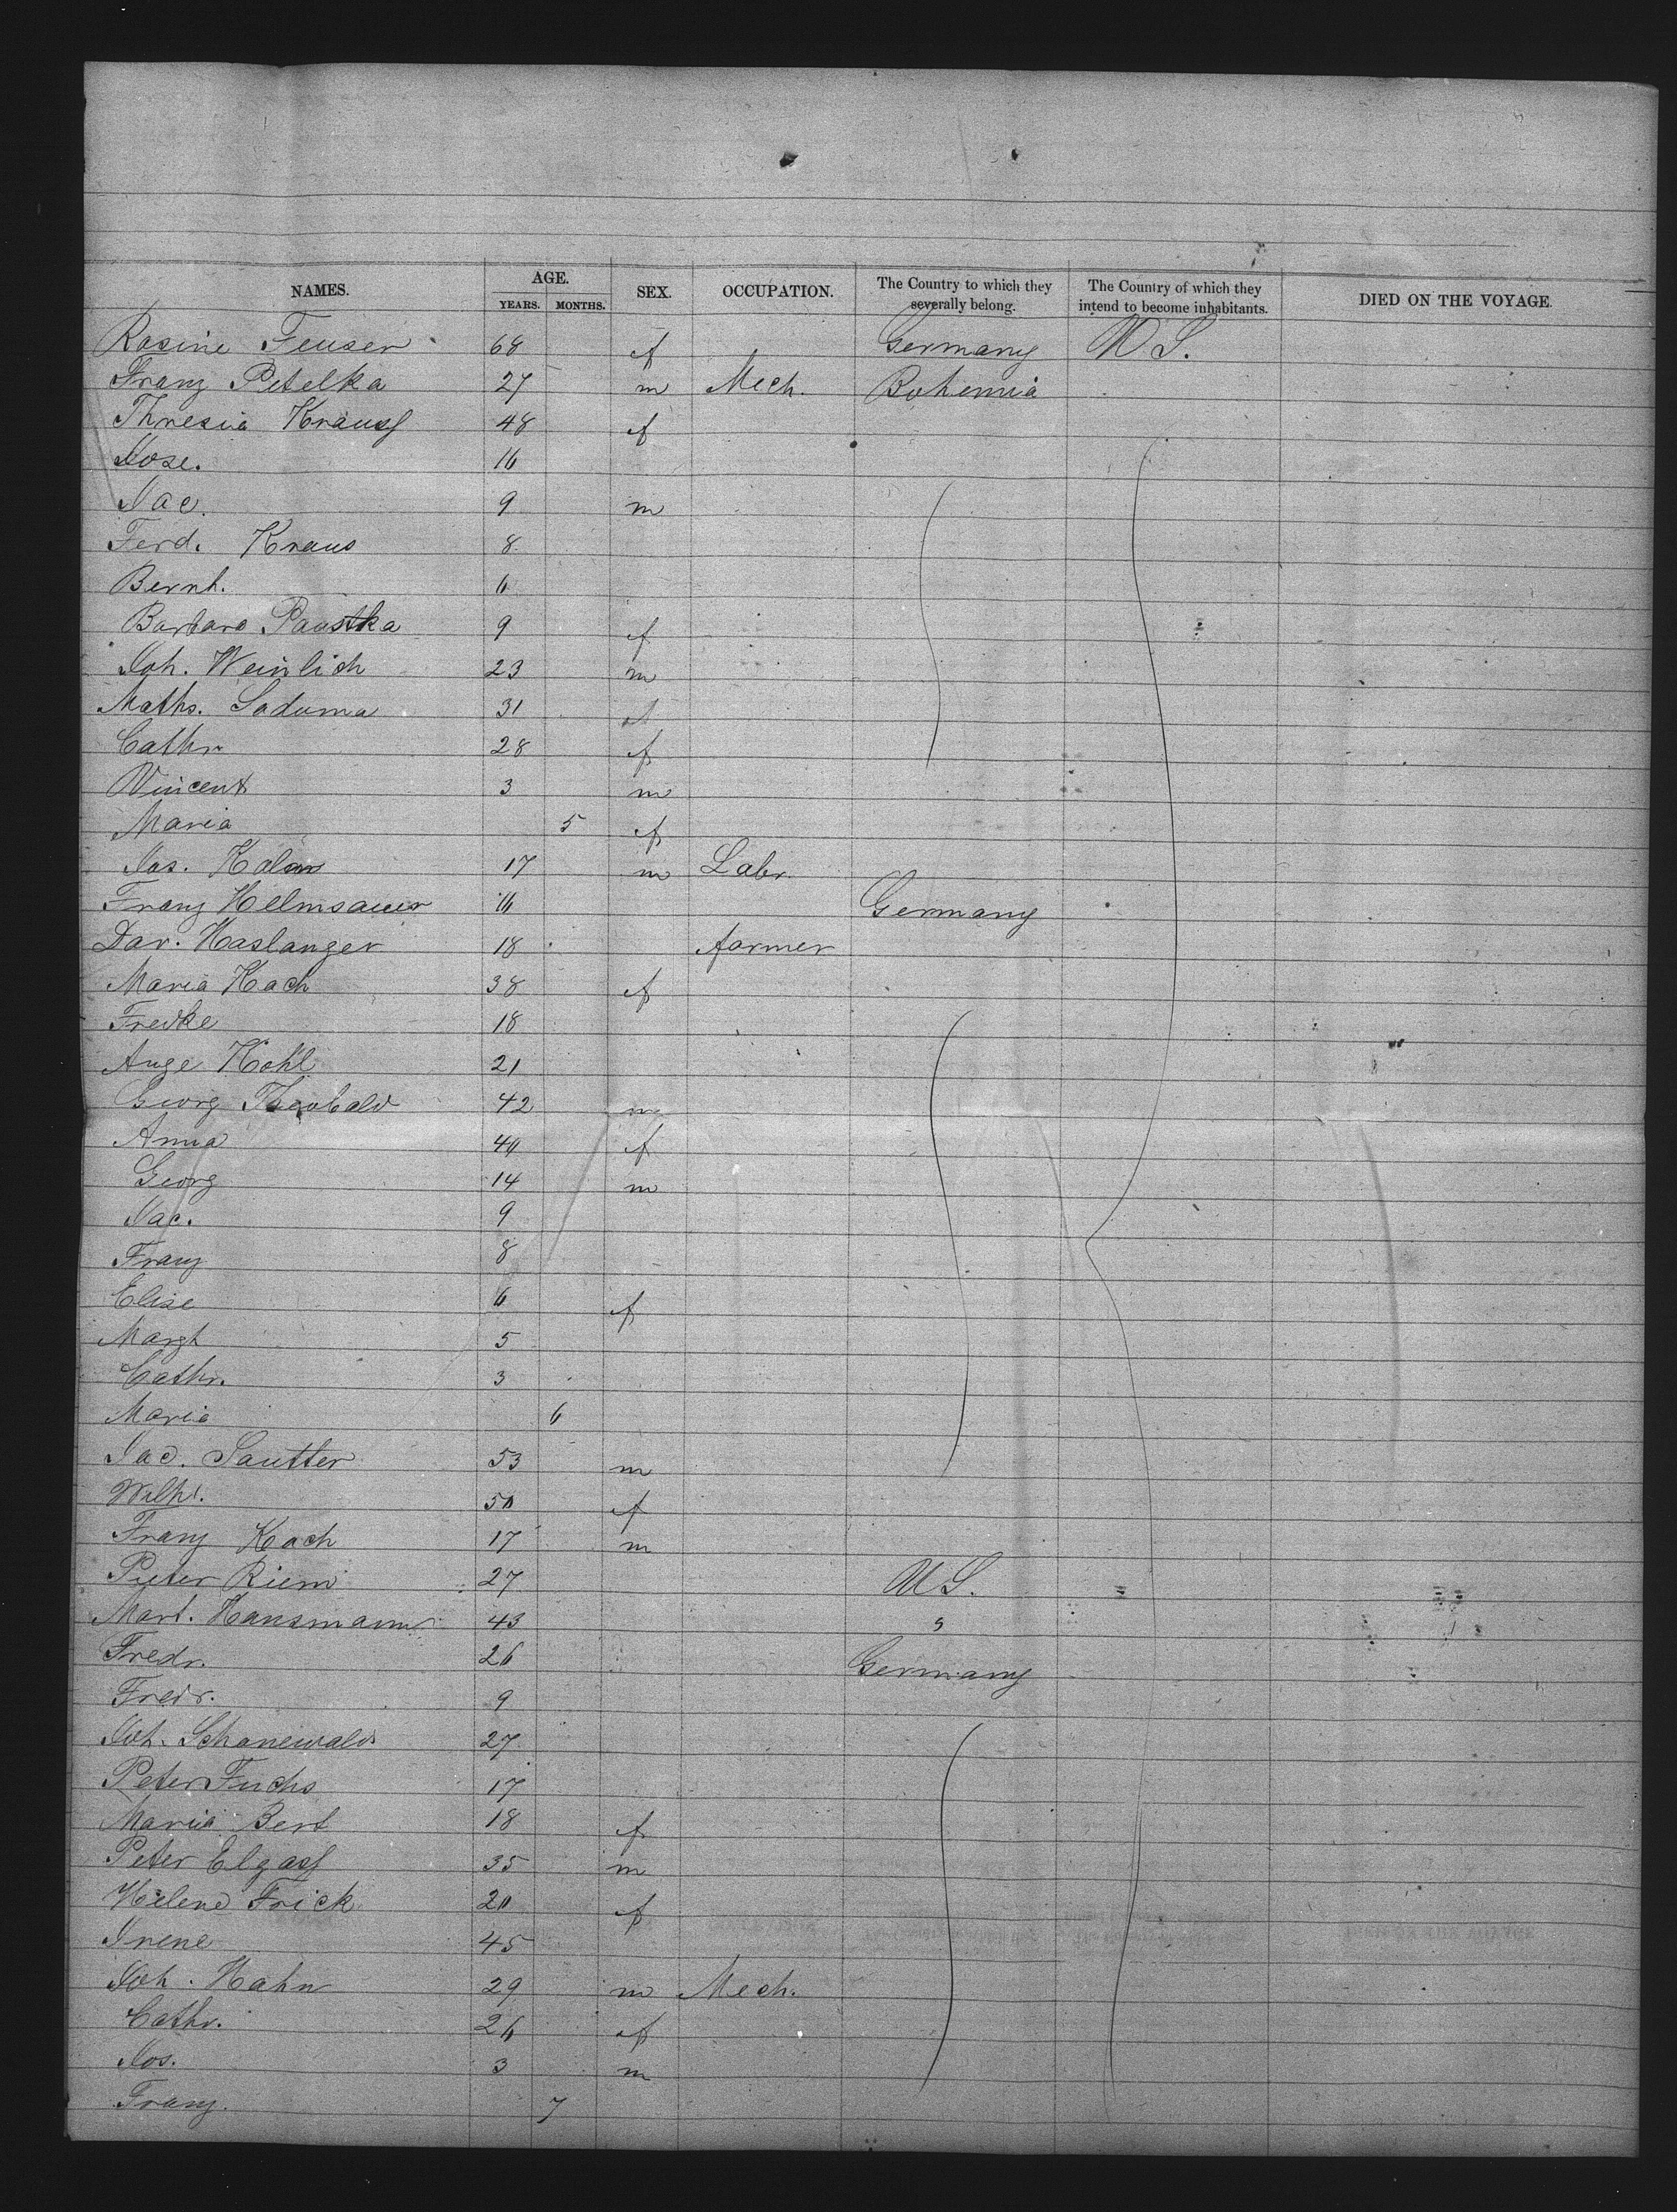 NAMES. AGE. SEX. OCCUPATION. The Country to which they severally belong. The Country of which they intend to become inhabitants. DIED ON THE VOYAGE.
YEARS. MONTHS.
Rosine Feuser 68 f Germany U S.
Franz Petelka 27 m Mech. Bohemia
Thresia Krauss 48 f
Jose. 16
Jac. 9 m
Ferd. Kraus 8
Bernh. 6
Barbara Paustka 9 f
Joh. Weinlich 23 m
Maths. Saduma 31
Cathr 28 f
Vincent 3 m
Maria 5 f
Jos. Kolar 17 m Labr.
Franz Helmsauer 16 Germany
Dav. Haslanger 18 farmer
Maria Koch 38 f
Fredke 18
Auge Kohl 21
Georg Theobald 42 m
Anna 40 f
Georg 14 m
Jac. 9
Franz 8
Elise 6 f
Margh 5
Cathr. 3
Maria 6
Jac. Sautter 53 m
Wilh. 50 f
Franz Koch 17 m
Peter Riem 27 U S.
Mart. Hansmann 43 "
Fredr. 26 Germany
Fredr. 9
Joh. Schonewald 27
Peter Fuchs 17
Maria Bert 18 f
Peter Elgass 35 m
Helene Frick 20 f
Irene 45
Joh. Hahn 29 m Mech.
Cathr. 26 f
Jos. 3 m
Franz. 7